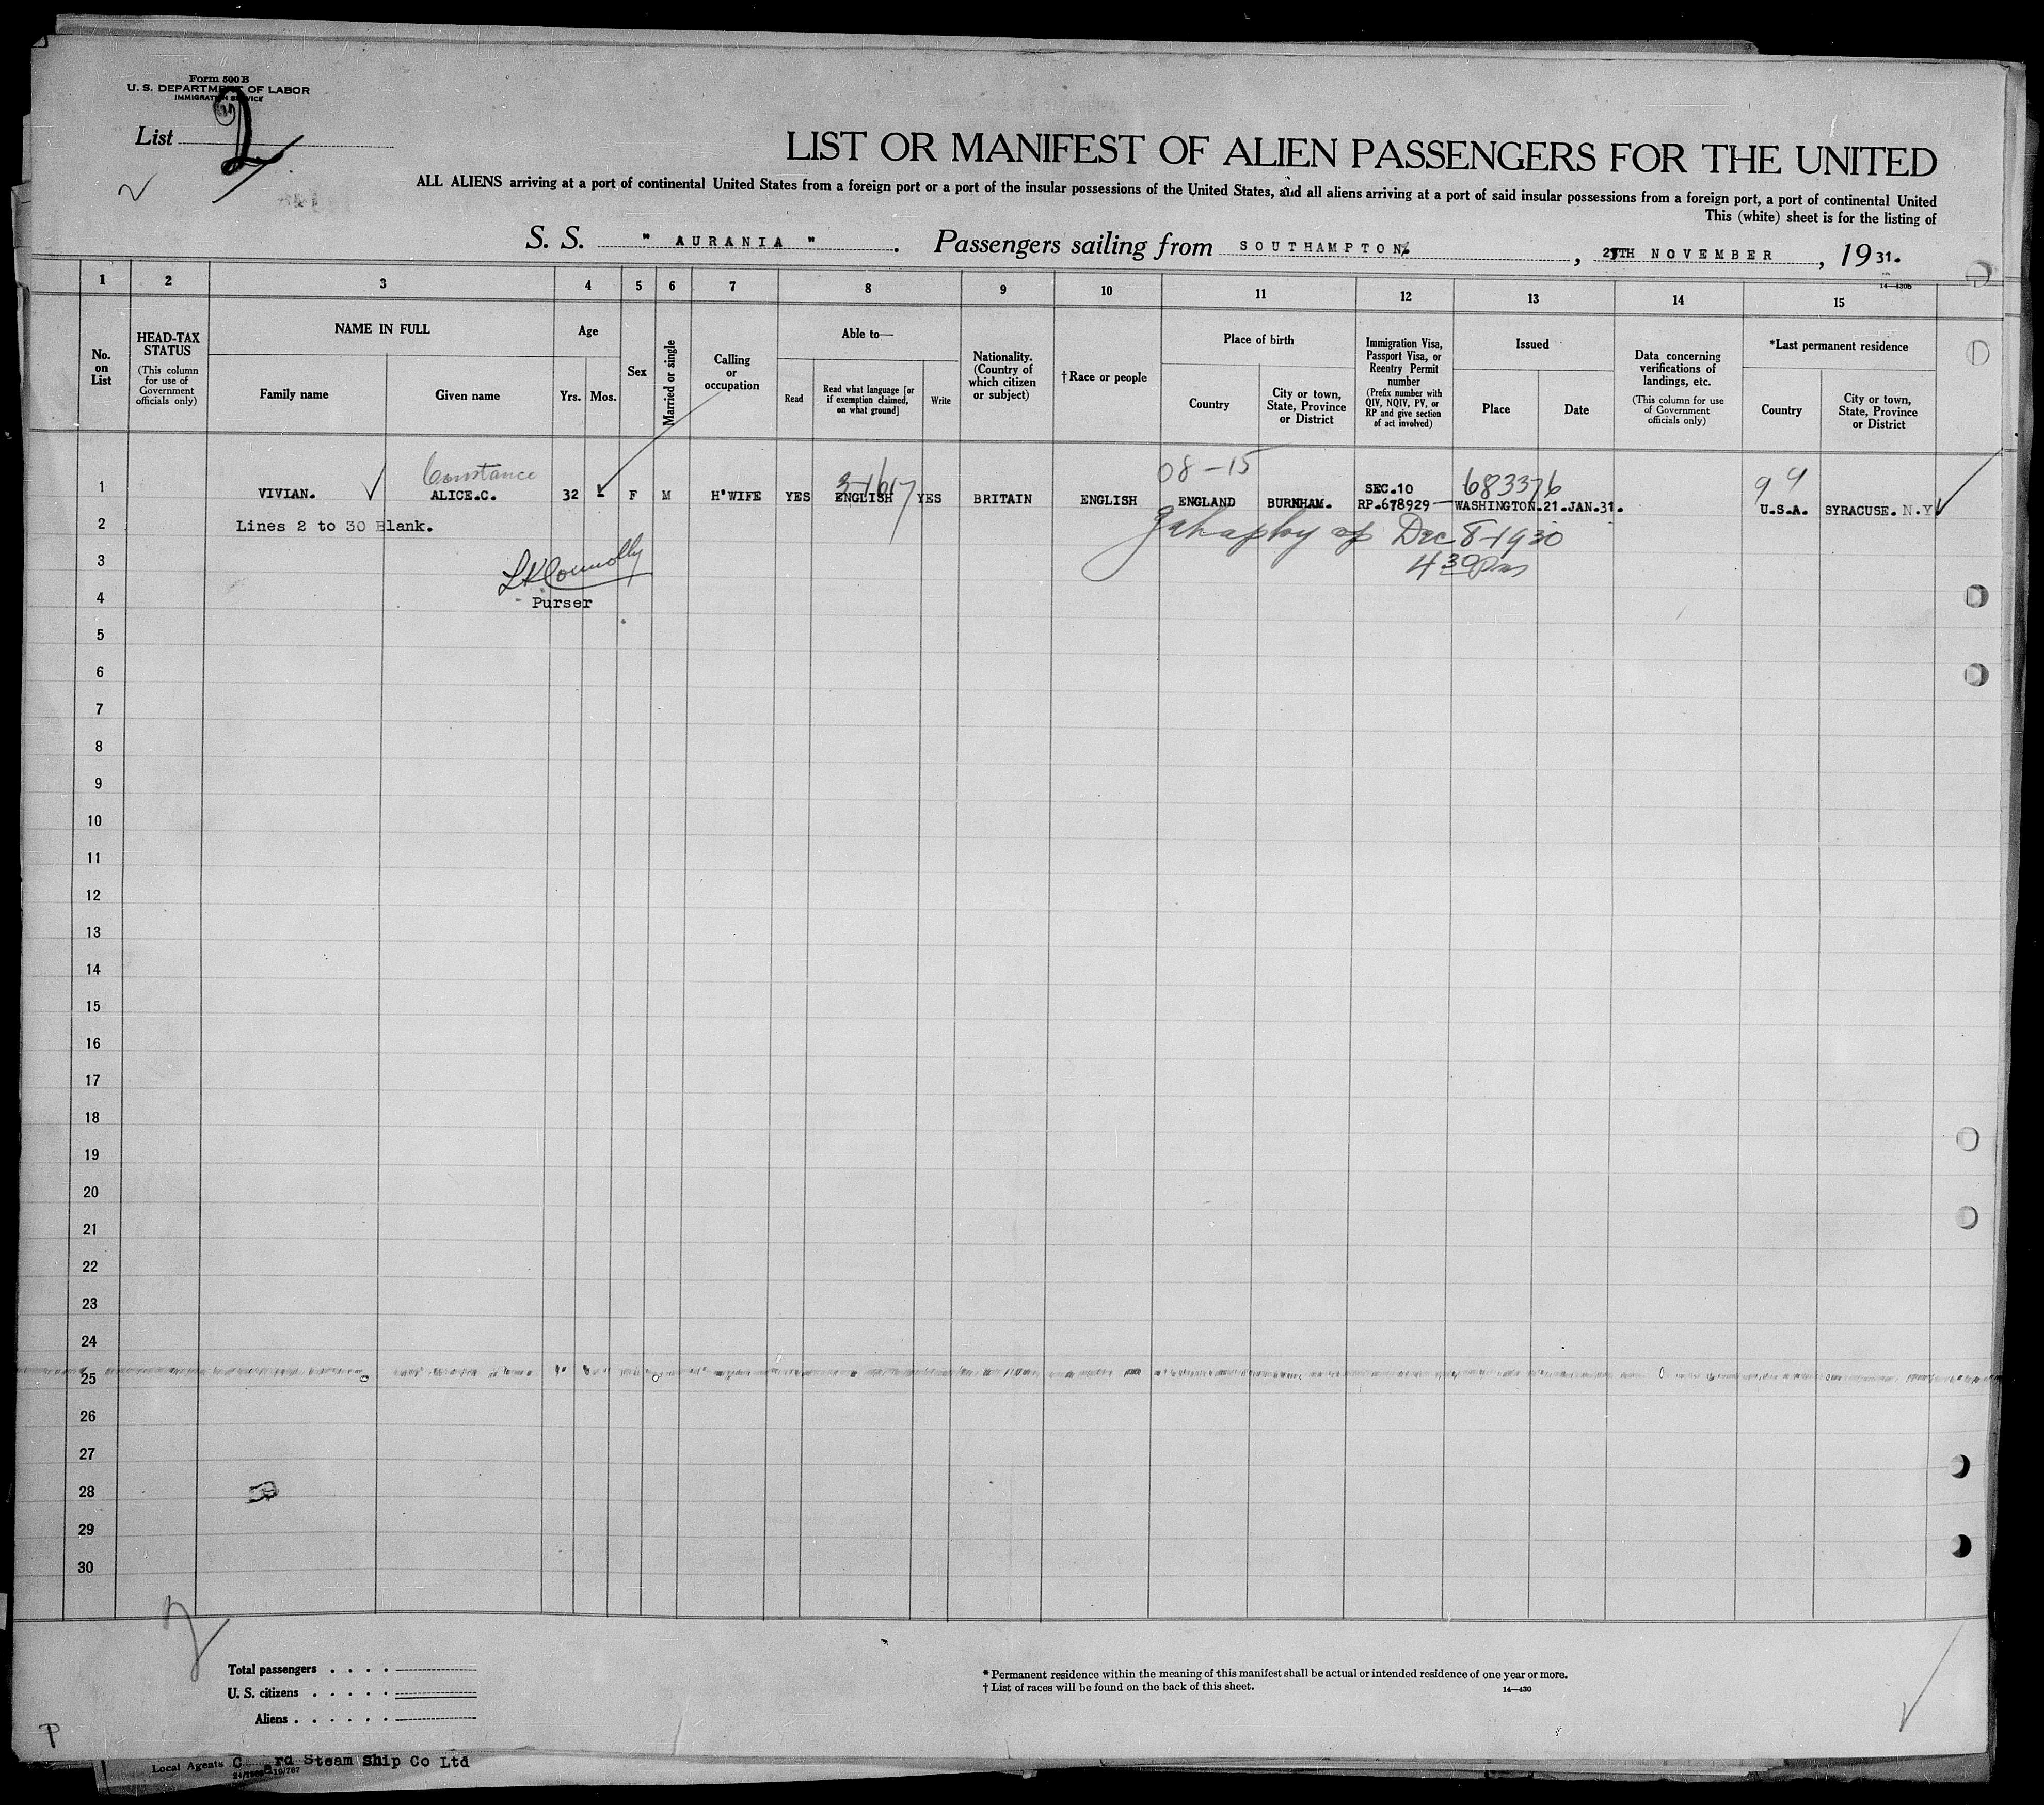 Form 500 B
U. S. DEPARTMENT OF LABOR
IMMIGRATION SERVICE
List 2
LIST OR MANIFEST OF ALIEN PASSENGERS FOR THE UNITED
ALL ALIENS arriving at a port of continental United States from a foreign port or a port of the insular possessions of the United States, and all aliens arriving at a port of said insular possessions from a foreign port, a port of continental United
This (white) sheet is for the listing of
S. S. " AURANIA " . Passengers sailing from SOUTHAMPTON , TH NOVEMBER , 19 31.
14—430b
1 2 3 4 5 6 7 8 9 10 11 12 13 14 15
No. on List
HEAD-TAX STATUS
(This column for use of Government officials only)
NAME IN FULL
Family name
Given name
Age
Yrs. Mos.
Sex
Married or single
Calling or occupation
Able to—
Read
Read what language [or if exemption claimed, on what ground]
Write
Nationality. (Country of which citizen or subject)
† Race or people
Place of birth
Country
City or town, State, Province or District
Immigration Visa, Passport Visa, or Reentry Permit number
(Prefix number with QIV, NQIV, PV, or RP and give section of act involved)
Issued
Place
Date
Data concerning verifications of landings, etc.
(This column for use of Government officials only)
*Last permanent residence
Country
City or town, State, Province or District
Constance 08-15 683376 99
1 VIVIAN. ALICE.C. 32 - F M H'WIFE YES ENGLISH YES BRITAIN ENGLISH ENGLAND BURNHAM. SEC.10 RP.678929 WASHINGTON.21.JAN.31. U.S.A. SYRACUSE. N.Y
2 Lines 2 to 30 Blank. Dec 8-1930
3 LKConnolly 4 30 Pm
4 Purser
5
6
7
8
9
10
11
12
13
14
15
16
17
18
19
20
21
22
23
24
25
26
27
28
29
30
2
Total passengers . . . .
U. S. citizens . . . . .
Aliens . . . . . .
* Permanent residence within the meaning of this manifest shall be actual or intended residence of one year or more.
† List of races will be found on the back of this sheet.
14—430
P
Local Agents Steam Ship Co Ltd